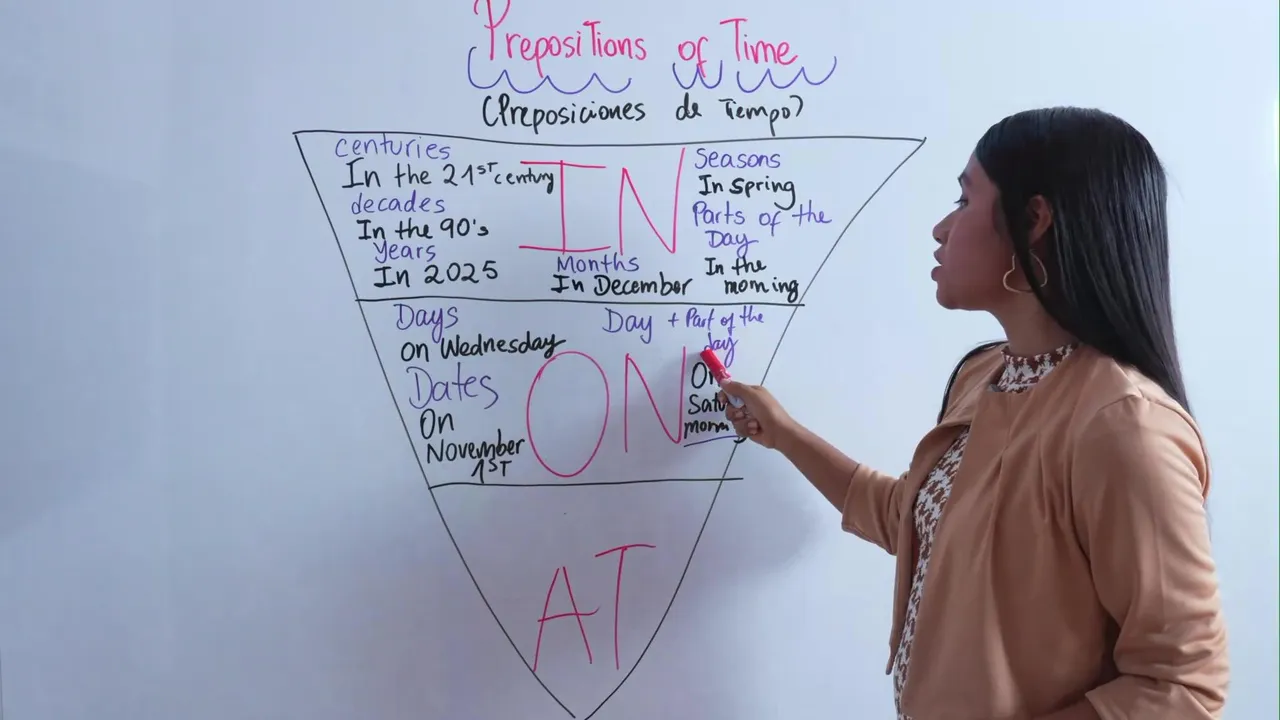 Prepositions of Time
(Preposiciones de Tiempo)
centuries
In the 21ST century
decades
In the 90's
years
In 2025
IN
Months
In December
Seasons
In spring
Parts of the
Day
In the
morning
Days
on Wednesday
Dates
On
November
1ST
ON
Day + Part of the
day
AT